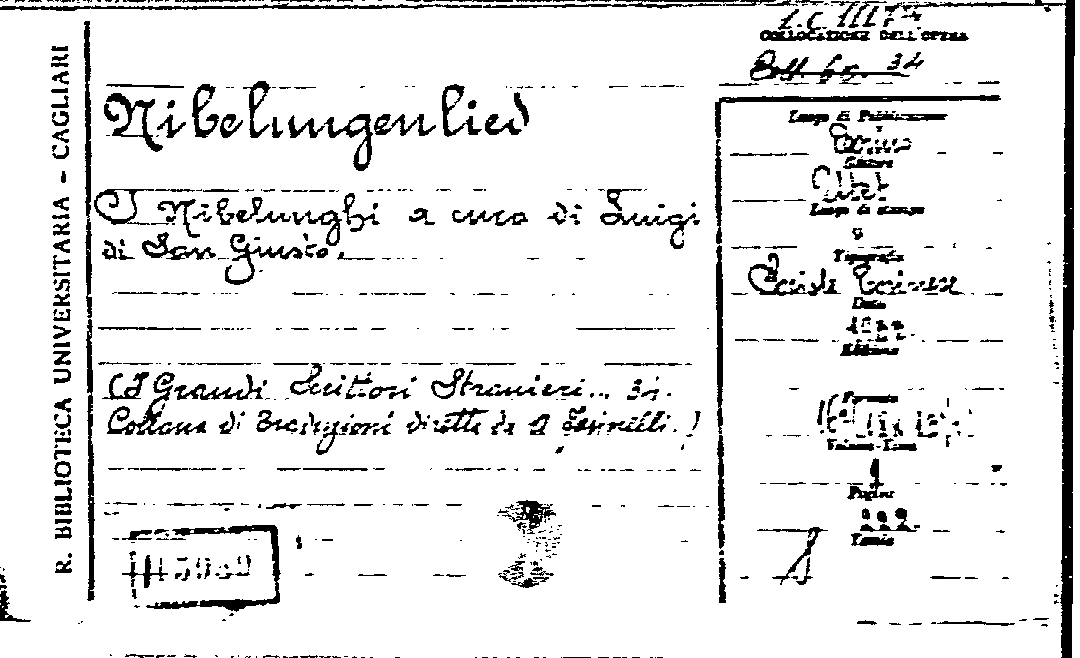 R. BIBLIOTECA UNIVERSITARIA - CAGLIARI
COLLOCAZIONE DELL'OPERA
Coll. 34
Nibelungenlied
I Nibelunghi a cura di Luigi
di San Giusto.
(I Grandi Scrittori Stranieri... 34.
Collana di Traduzioni dirette da A. Farinelli.)
Luogo di Pubblicazione
Torino
Editore
Utet
Luogo di stampa
Tipografia
Sociale Torinese
Data
Edizione
Formato
16°
Volume-Tomo
1
Pagine
Tavole